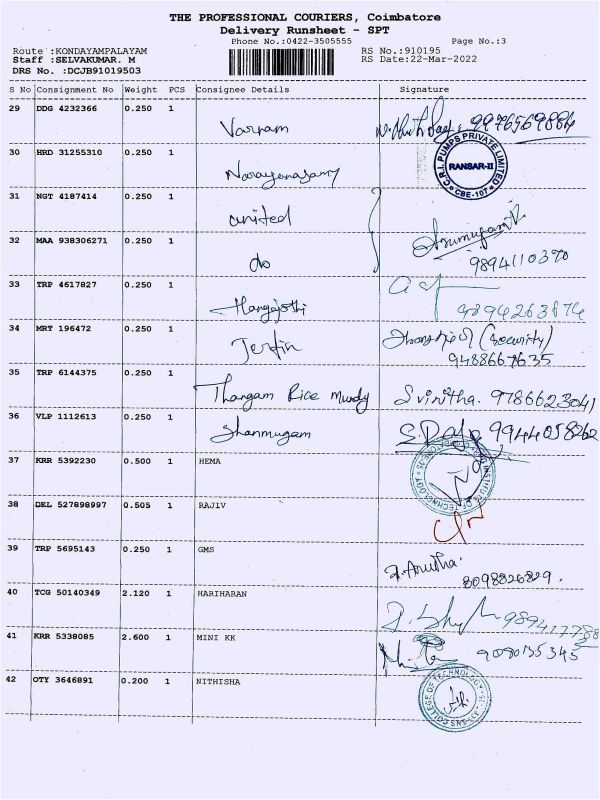 THE PROFESSIONAL COURIERS, Coimbatore
Delivery Runsheet - SPT
Phone No.:0422-3505555 Page No.:3
Route :KONDAYAMPALAYAM RS No.:910195
Staff :SELVAKUMAR. M RS Date:22-Mar-2022
DRS No. :DCJB91019503
S No Consignment No Weight PCS Consignee Details Signature
29 DDG 4232366 0.250 1 Varnam 9976569884
30 HRD 31255310 0.250 1 Narayanasamy C.R.I. PUMPS PRIVATE LIMITED RANSAR-II CBE-107
31 NGT 4187414 0.250 1 united
32 MAA 938306271 0.250 1 do Arumugam 9894110370
33 TRP 4617827 0.250 1 9894263674
34 MRT 196472 0.250 1 Jerlin (security)
9488667635
35 TRP 6144375 0.250 1 Thangam Rice Mundy Srinitha. 9786623041
36 VLP 1112613 0.250 1 Shanmugam 9944058262
37 KRR 5392230 0.500 1 HEMA INSTITUTE OF TECHNOLOGY
38 DEL 527898997 0.505 1 RAJIV
39 TRP 5695143 0.250 1 GMS Anutha.
8098826829.
40 TCG 50140349 2.120 1 HARIHARAN
41 KRR 5338085 2.600 1 MINI KK 9080135345
42 OTY 3646891 0.200 1 NITHISHA SNS COLLEGE OF TECHNOLOGY